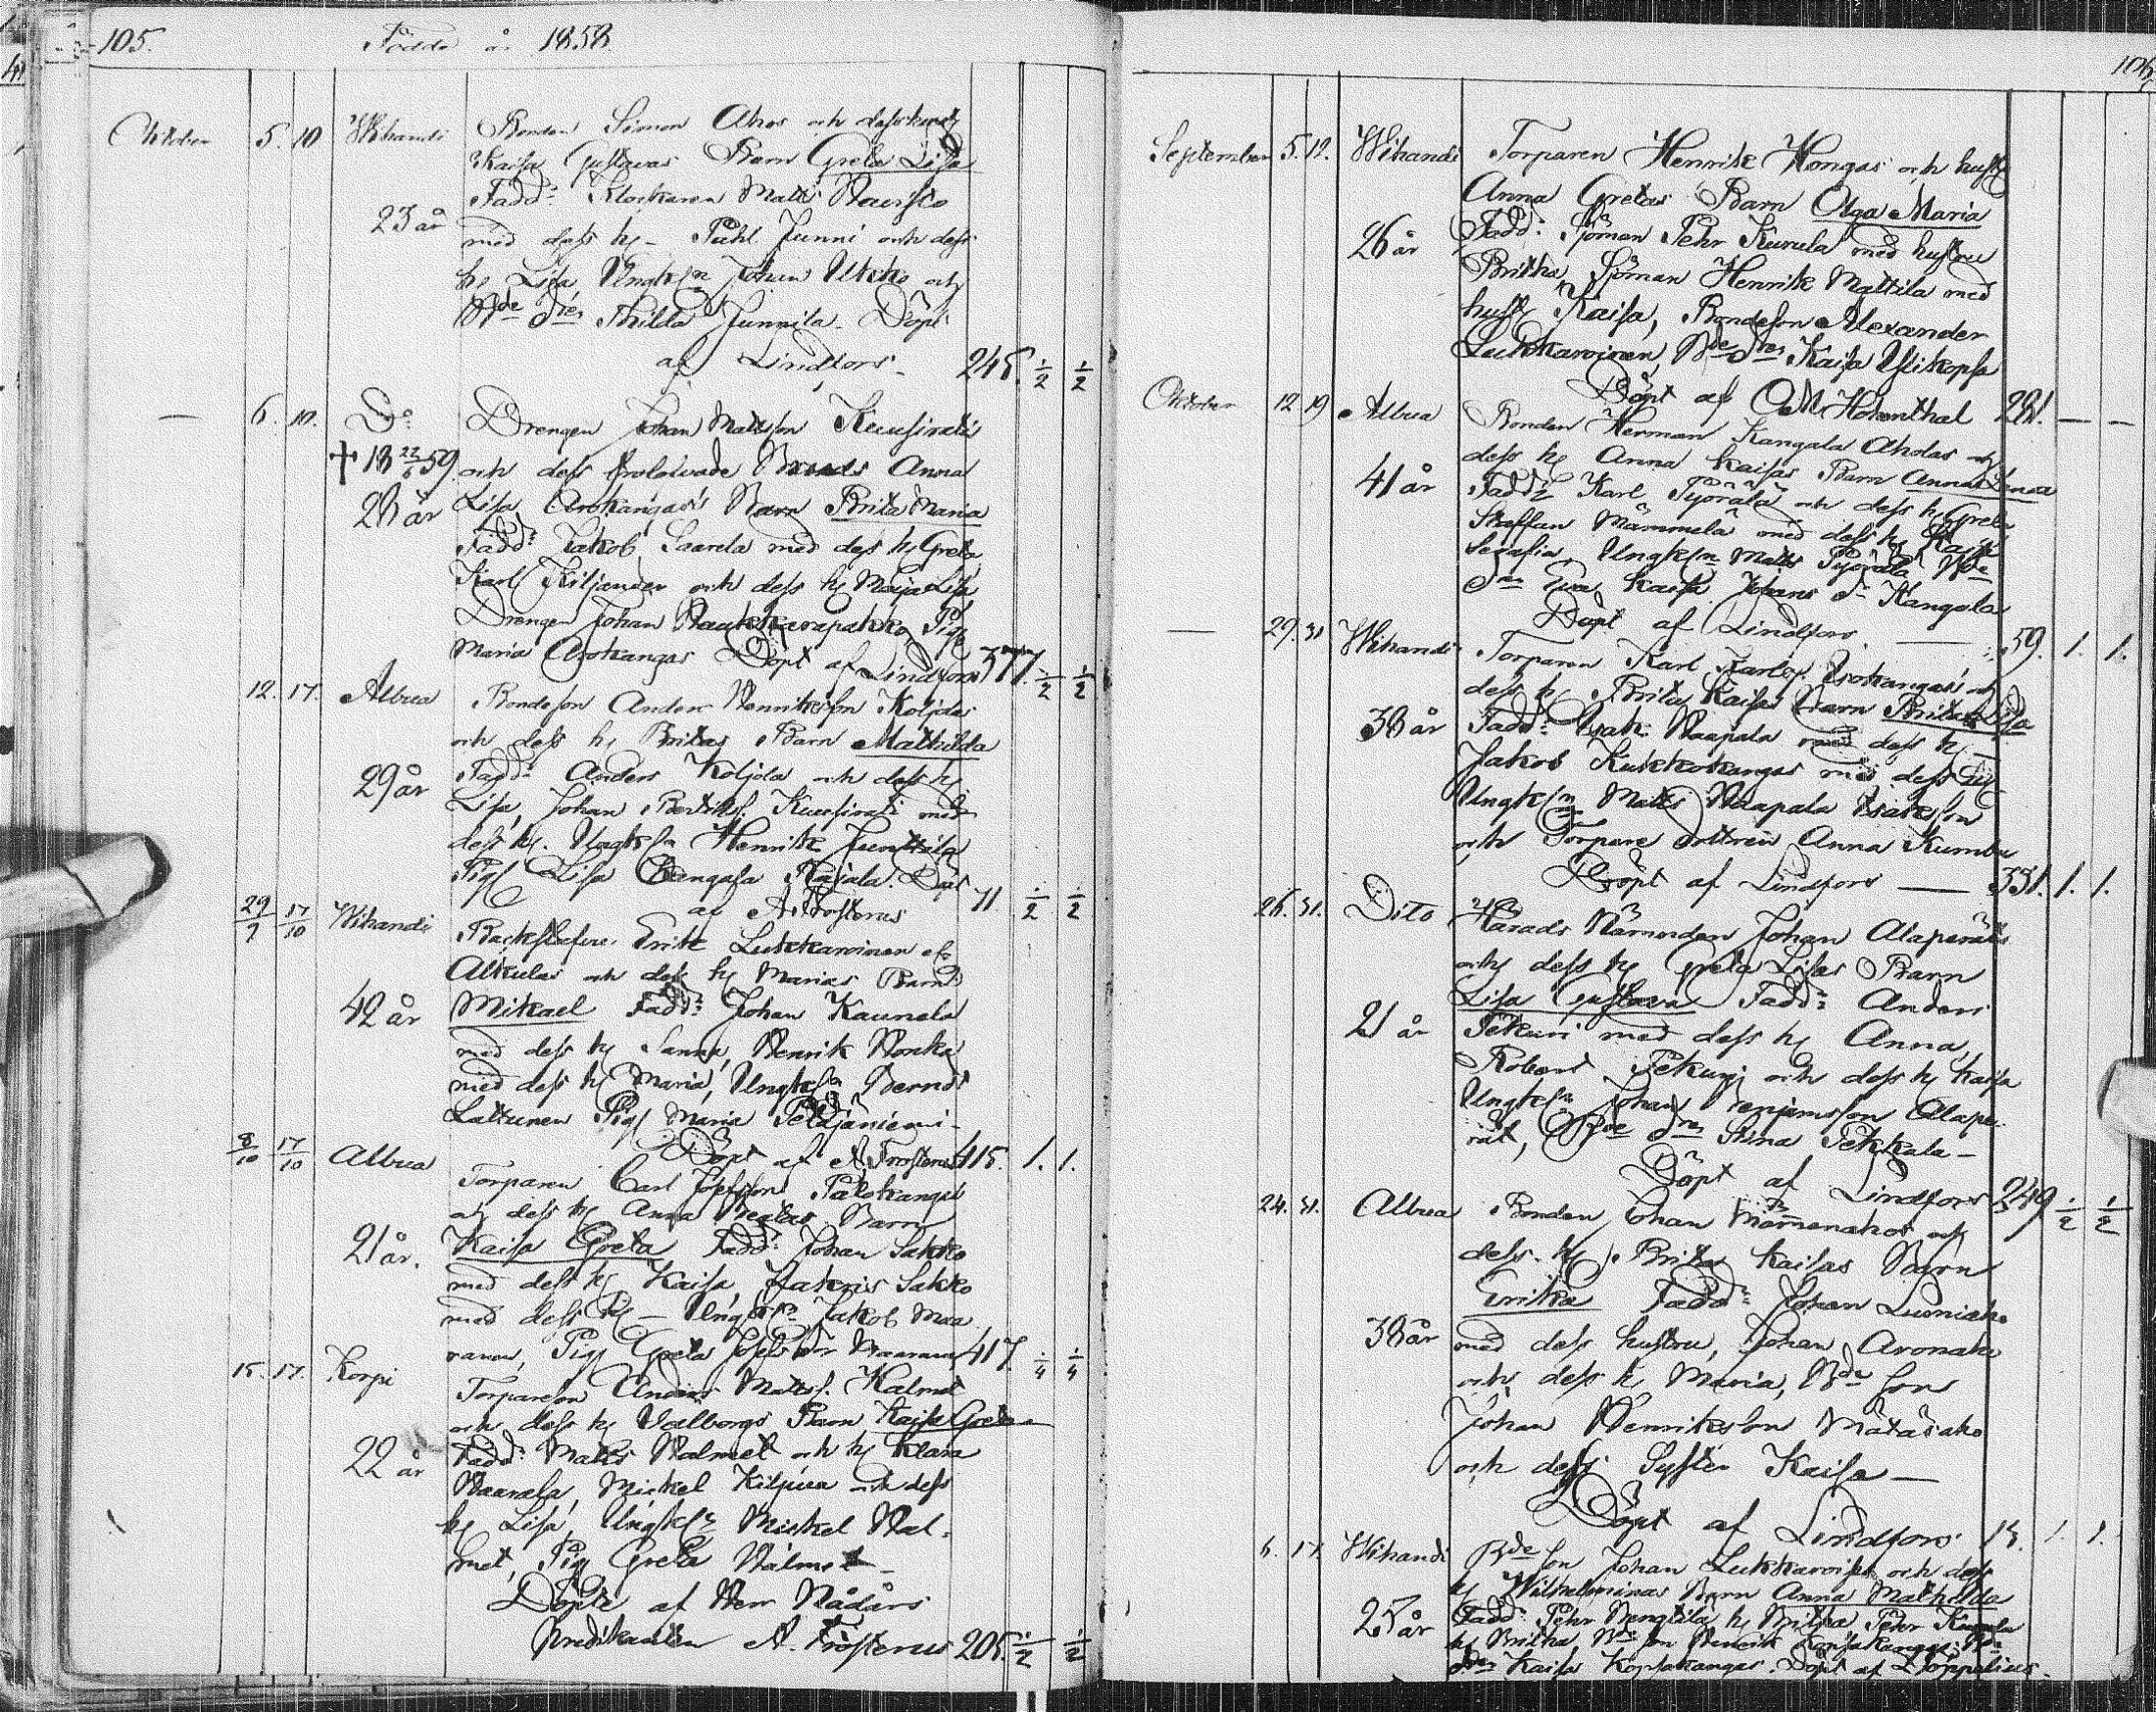 105. Födde år 1858.
Oktober 5. 10 Wihandi Bonden Simon Ahos och dess hust
Kaisa Gustavas Barn Greta Lisa
Fadd: Klockaren Matts
23 år med dess h; — Påhl Junni och dess
h; Lisa, Ungk:n Johan Ukko och
Bde Dr Thilda Junnila. Döpt
af Lindfors. 245. 1/2 1/2
— 6. 10. Do Drengen Johan Mattsson Kuusirati
+ 18 22/6 59. och dess trolovade Anna
28 år Lisa Arokangas's Barn Brita Maria
Fadd: Jakob Saarela med dess h; Greta
Karl Kiljander och dess h; Maja Lisa
Drengen Johan Pig
Maria Arokangas Döpt af Lindfors 377. 1/2 1/2
12. 17. Albua Bondeson Anders Henriksson Koljolas
och dess h; Britas Barn Mathilda
29 år Fadd: Anders Koljola och dess h;
Lisa, Johan Bertils. Kuusirati med
dess h;. Ungk:n Henrik Junttila
Pig Lisa Kangasa Rajala. Döpt
af A. Frosterus 11. 1/2 1/2
29/7 17/10 Wihandi Backstufu. Erik Lukkaroinen el.
Alkulas och dess h; Marias Barn
42 år Mikael Fadd: Johan Kaunela
med dess h; Sanna, Henrik Honka
med dess h; Maria, Ungk:n Bernd
Lattunen Pig Maria Peldjäniemi.
Döpt af A. Frosterus 415. 1. 1.
8/10 17/10 Albua Torparen Carl Josefsson Palokangas
och dess h; Anna Gretas Barn
21 år. Kaisa Greta Fadd: Johan Sakko
med dess h; Kaisa, Zakris Sakko
med dess h; — Ungk:n Jakob Maa
ranen, Pig Greta Josefs Dr Maaranen 417. 1/4 1/4
15. 17. Korpi Torpareson Anders Matts. Halmet
och dess h; Valborgs Barn Kaisa Greta
22 år Fadd: Matts Halmet och h; Klara
Mickel Kilpua och dess
h; Lisa, Ungk:n Mickel Hal-
met, Pig Greta Halmet —
Döpte af Herr Nådårs
Predikanten A. Frosterus 205. 1/2 1/2
106.
September 5. 12. Wihandi Torparen Henrik Hongas och hust
Anna Gretas Barn Olga Maria
26 år Fadd: Sjöman Pehr Kurula med hustru
Britha, Sjöman Henrik Mattila med
hust Kaisa, Bondeson Alexander
Lukkaroinen, Bde Dr Kaisa Ylikopsa
Döpt af C.M Holmthal 281. — —
Oktober 12 19 Albua Bonden Herman Kangala Aholas och
dess h; Anna Kaisas Barn Anna Linna
41 år Fadd: Karl Työrälä och dess h; Greta
Staffan Mämmelä med dess h; Kaisa
Serafia, Ungk:n Matts Työrälä, Bde
Dr Eva Kaisa Johans Dr Kangala
Döpt af Lindfors. — 59. 1. 1.
— 29. 31 Wihandi Torparen Karl Karls. Arokangas och
dess h; Brita Kaisas Barn Brita Lisa
38 år Fadd: Isak Haapala med dess h; —
Jakob Kukkokangas med dess h;
Ungk:n Matts Haapala Isaksson
och Torpare dottren Anna Kumbu
Döpt af Lindfors — 331. 1. 1.
26. 31. Dito Härads Nämnden Johan Alaperäs
och dess h; Greta Lisas Barn
Lisa Gustava Fadd: Anders
21 år Pekuri med dess h; Anna,
Robert Pekuri och dess h; Kaisa
Ungk:n Johan Benjamsson Alape-
rät, Bde Dr Stina Pekkala —
Döpt af Lindfors 249 1/2 1/2
24. 31. Albua Bonden Johan Mämmenahos och
dess h; Brita Kaisas Barn
Erika Fadd: Johan Lumiaho
38 år med dess hustru, Johan Aronaho
och dess h; Maria, Bde son
Johan Henriksson Mätäsaho
och dess Syster Kaisa —
Döpt af Lindfors 13. 1. 1.
6. 17. Wihandi Bde son Johan Lukkaroisen och dess
h; Wilhelminas Barn Anna Mathilda
25 år Fadd: Pehr h; Britha Pehr Kurula
h; Britha, Bde son Henrik Kopsakangas, Bde
Dr Kaisa Kopsakangas. Döpt af Hoppelius.